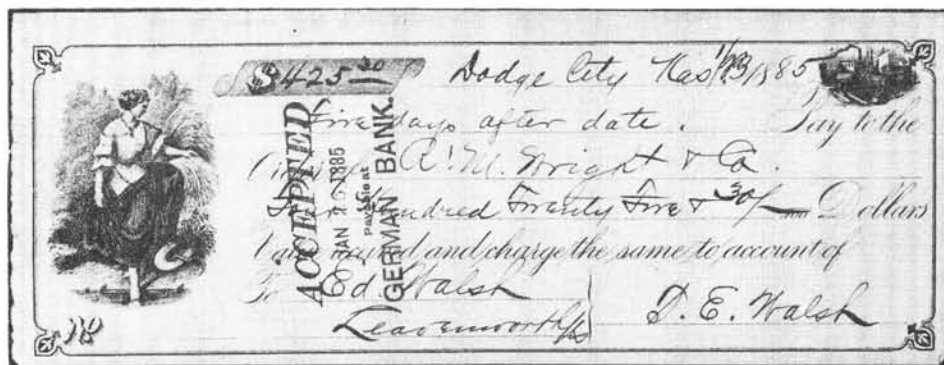 $425 30 Dodge City Kas 1/23/1885
Five days after date. Pay to the
Order of R. M. Wright & Co.
Four Hundred Twenty Five & 30/ Dollars
Value received and charge the same to account of
To Ed. Walsh D. E. Walsh
Leavenworth Ks
ACCEPTED
JAN 26 1885
Payable at
GERMAN BANK.